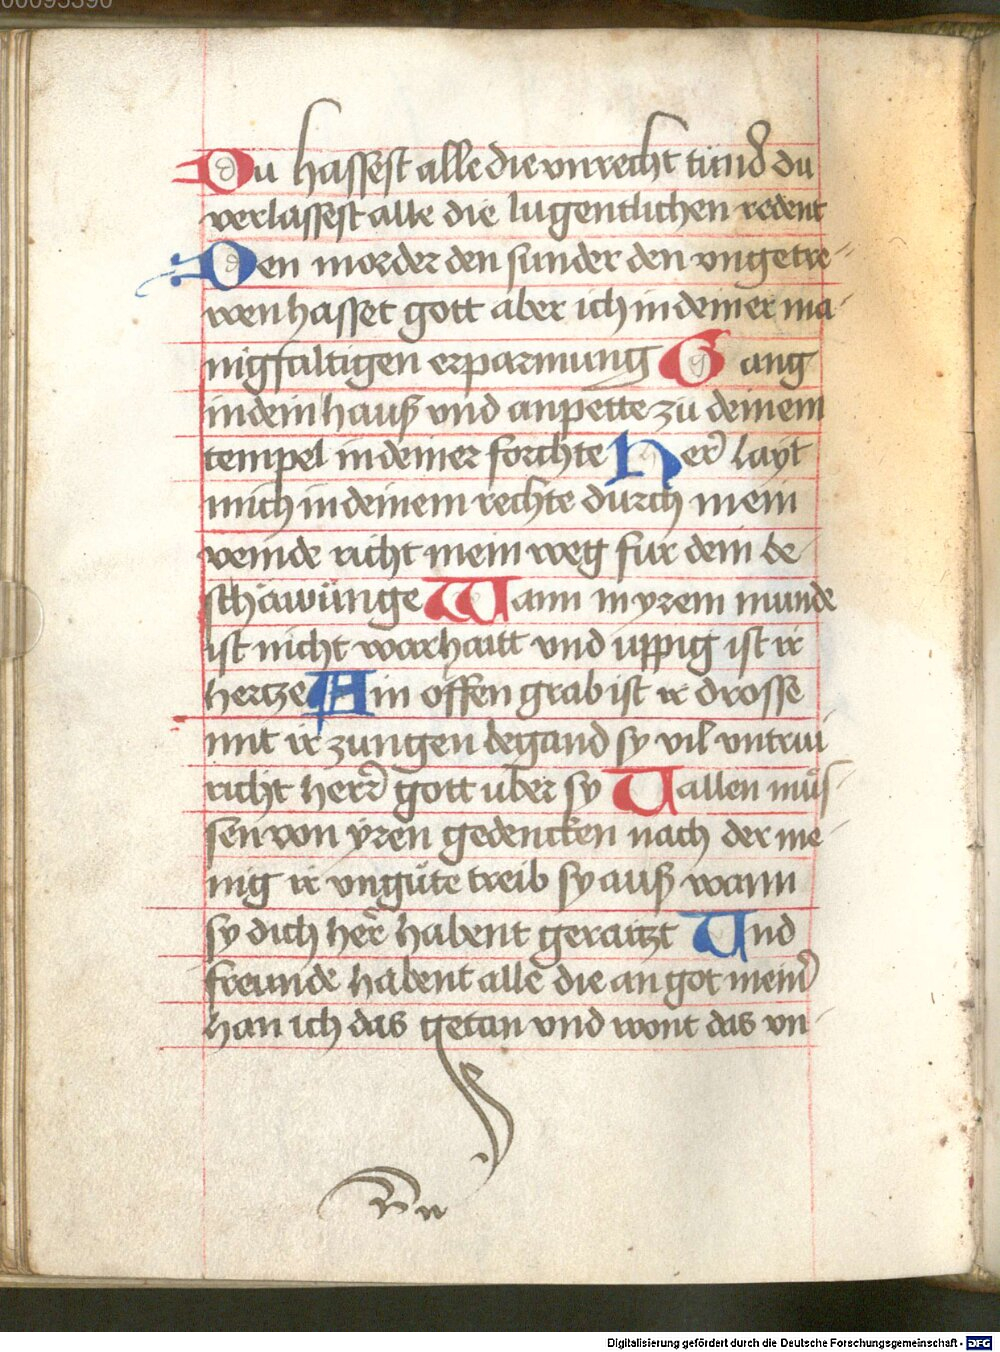 00095390
Du hassest alle die vnrecht tund du
verlassest alle die lugentlichen redent
Den morder den sunder den vngetre-
wen hasset gott aber ich in deiner ma-
nigfaltigen erparmung Gang
in dein hauß vnd anpette zu deinem
tempel in deiner forchte Her layt
mich in deinem rechte durch mein
veinde richt mein weg fur dein be-
schäwünge Wann in yrem munde
ist nicht warhaitt vnd uppig ist ir
hertze Ain offen grab ist ir drosse
mit ir zungen begand sy vil vntrui
richt herr gott uber sy Uallen müs-
sen von yren gedencken nach der me-
nig ir vngüte treib sy auß wann
sy dich her habent geraitzt Und
freunde habent alle die an got mein
han ich das getan vnd wont das vn-
Digitalisierung gefördert durch die Deutsche Forschungsgemeinschaft - DFG